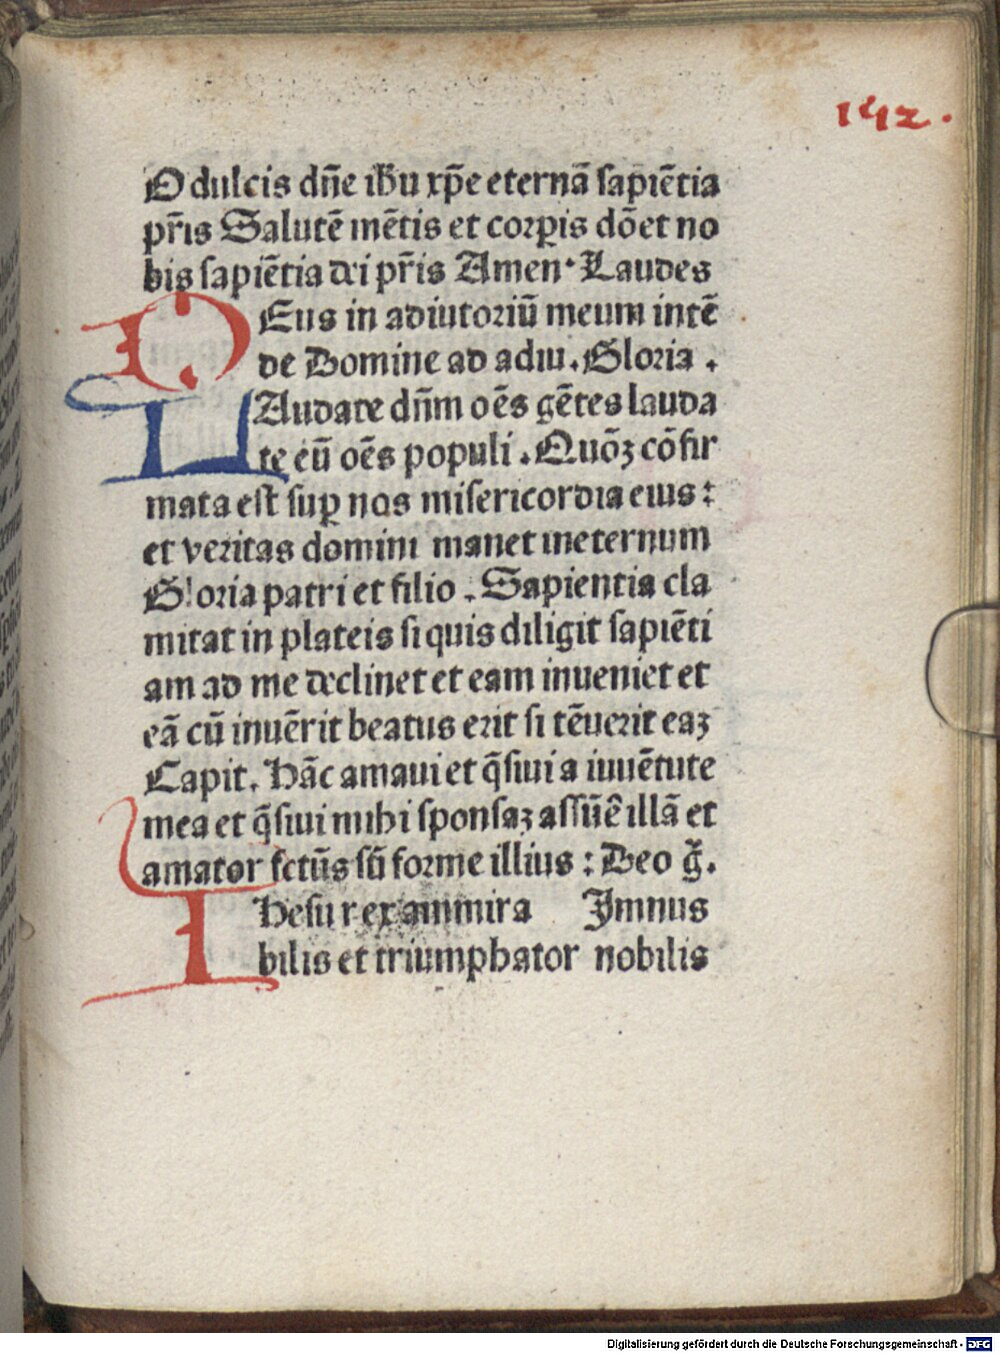 142.
O dulcis dn̄e ih̄u xp̄e eternā sapiētia
pr̄is Salutē mētis et corꝑis dōet no
bis sapiētia dei pr̄is Amen· Laudes
DEus in adiutoriū meum intē
de Domine ad adiu. Gloria .
LAudate dn̄m oēs gētes lauda
te eū oēs populi . Quōꝫ cōfir
mata est suꝑ nos misericordia eius :
et veritas domini manet ineternum
Gloria patri et filio . Sapientia cla
mitat in plateis si quis diligit sapiēti
am ad me declinet et eam inueniet et
eā cū inuērit beatus erit si tēuerit eaꝫ
Capit. Hāc amaui et q̄siui a iuuētute
mea et q̄siui mihi sponsaꝫ assūē illā et
amator fctūs sū forme illius : Deo ḡ.
IHesu rex ammira Imnus
bilis et triumphator nobilis
Digitalisierung gefördert durch die Deutsche Forschungsgemeinschaft - DFG